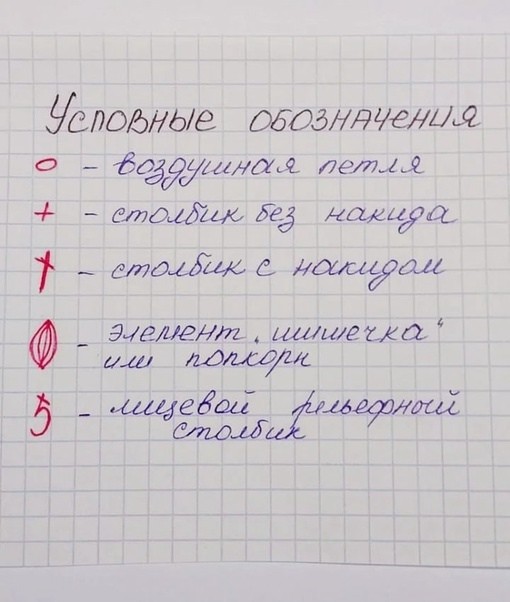 Условные обозначения
о - воздушная петля
+ - столбик без накида
† - столбик с накидом
- элемент „шишечка“
или попкорн
5 - лицевой рельефный
столбик